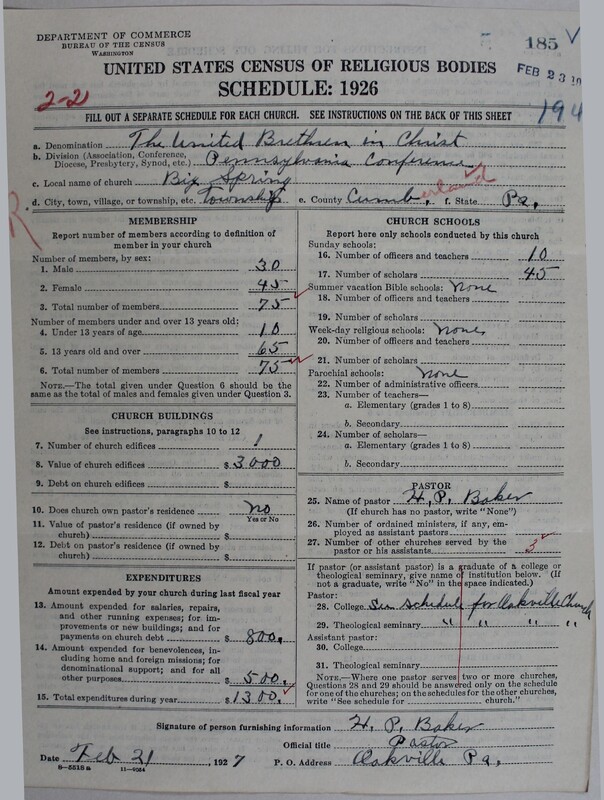 DEPARTMENT OF COMMERCE
BUREAU OF THE CENSUS
WASHINGTON
185
FEB 23 19
UNITED STATES CENSUS OF RELIGIOUS BODIES
SCHEDULE: 1926
2-21
194
FILL OUT A SEPARATE SCHEDULE FOR EACH CHURCH. SEE INSTRUCTIONS ON THE BACK OF THIS SHEET
a. Denomination The United Brethren in Christ
b. Division (Association, Conference, Diocese, Presbytery, Synod, etc.) Pennsylvania Conference
c. Local name of church Big Spring
d. City, town, village, or township, etc. Township e. County Cumberland f. State Pa.
R
MEMBERSHIP
Report number of members according to definition of
member in your church
Number of members, by sex:
1. Male 30
2. Female 45
3. Total number of members 75
Number of members under and over 13 years old:
4. Under 13 years of age 10
5. 13 years old and over 65
6. Total number of members 75
NOTE.—The total given under Question 6 should be
the same as the total of males and females given under Question 3.
CHURCH BUILDINGS
See instructions, paragraphs 10 to 12
7. Number of church edifices 1
8. Value of church edifices $ 3000
9. Debt on church edifices $
10. Does church own pastor's residence No
Yes or No
11. Value of pastor's residence (if owned by
church) $
12. Debt on pastor's residence (if owned by
church) $
EXPENDITURES
Amount expended by your church during last fiscal year
13. Amount expended for salaries, repairs,
and other running expenses; for im-
provements or new buildings; and for
payments on church debt $ 800.
14. Amount expended for benevolences,
including home and foreign missions; for
denominational support; and for all
other purposes 500.
15. Total expenditures during year $ 1300.
CHURCH SCHOOLS
Report here only schools conducted by this church
Sunday schools:
16. Number of officers and teachers 10
17. Number of scholars 45
Summer vacation Bible schools: None
18. Number of officers and teachers
19. Number of scholars
Week-day religious schools: None
20. Number of officers and teachers
21. Number of scholars
Parochial schools: None
22. Number of administrative officers
23. Number of teachers—
a. Elementary (grades 1 to 8)
b. Secondary
24. Number of scholars—
a. Elementary (grades 1 to 8)
b. Secondary
PASTOR
25. Name of pastor H. P. Baker
(If church has no pastor, write "None")
26. Number of ordained ministers, if any, em-
ployed as assistant pastors
27. Number of other churches served by the
pastor or his assistants 3
If pastor (or assistant pastor) is a graduate of a college or
theological seminary, give name of institution below. (If
not a graduate, write "No" in the space indicated.)
Pastor:
28. College See schedule for Oakville Church
29. Theological seminary " " " "
Assistant pastor:
30. College
31. Theological seminary
NOTE.—Where one pastor serves two or more churches,
Questions 28 and 29 should be answered only on the schedule
for one of the churches; on the schedules for the other churches,
write "See schedule for church."
Signature of person furnishing information H. P. Baker
Official title Pastor
Date Feb 21, 1927 P. O. Address Oakville Pa.
8—5518a 11—4064